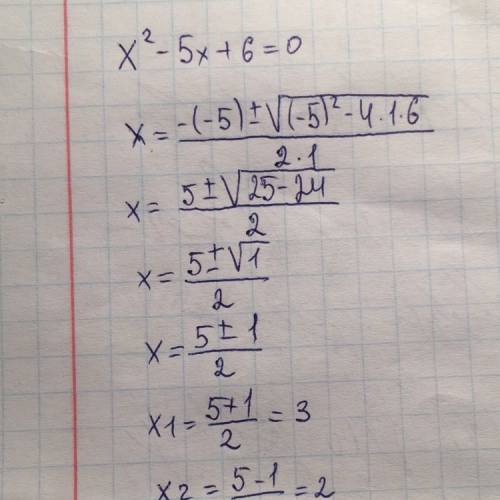 x² - 5x + 6 = 0
x = (-(-5) ± √((-5)² - 4·1·6)) / (2·1)
x = (5 ± √(25 - 24)) / 2
x = (5 ± √1) / 2
x = (5 ± 1) / 2
x1 = (5+1) / 2 = 3
x2 = (5-1) / = 2